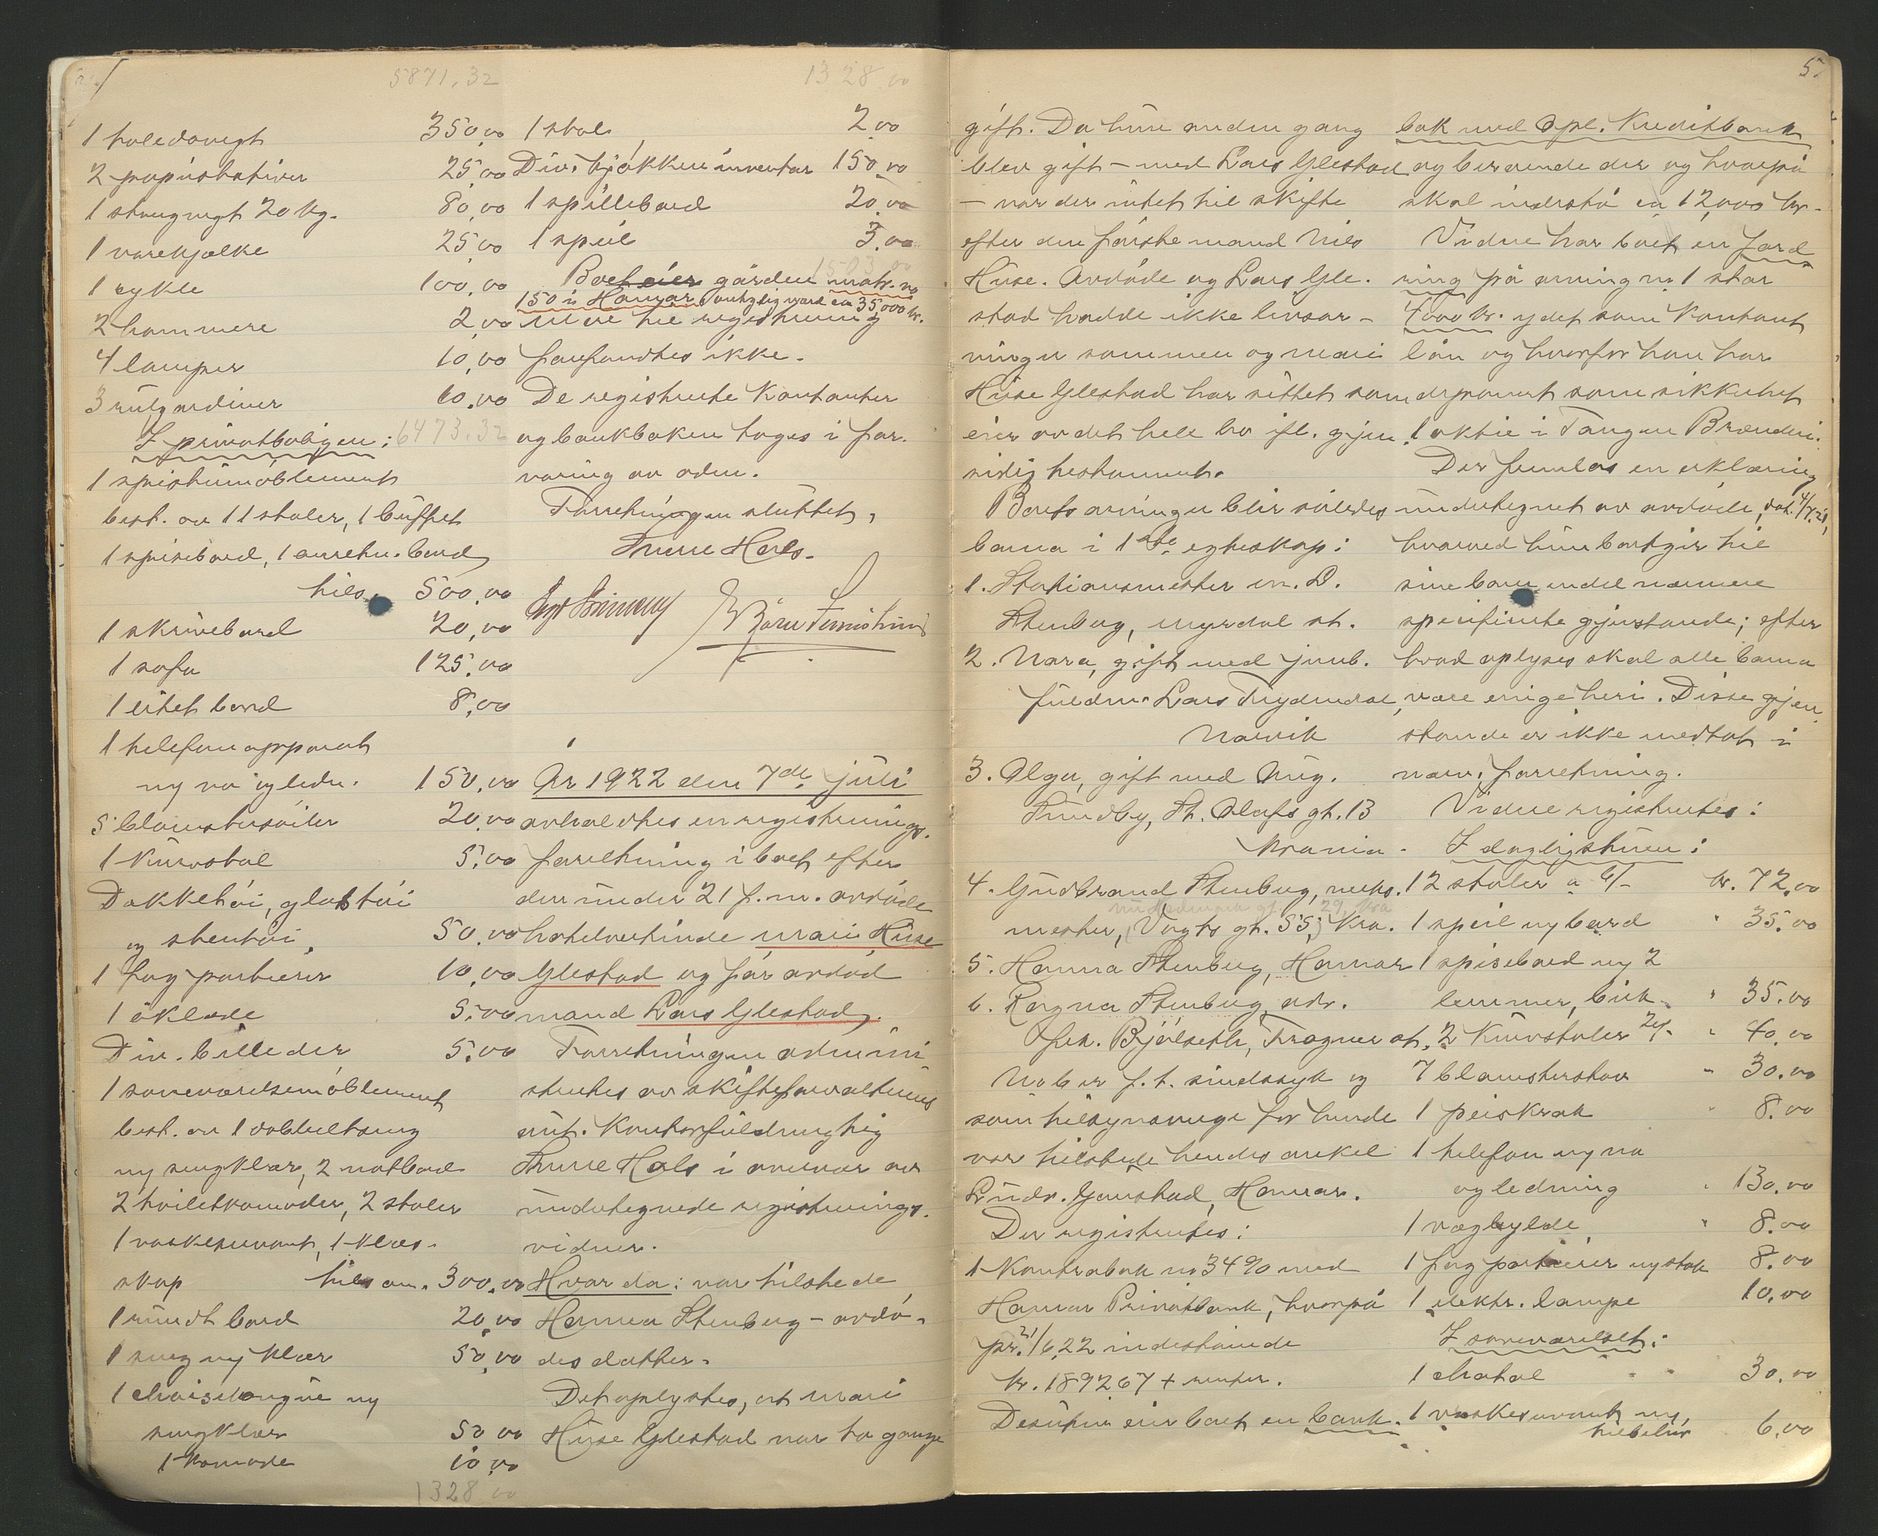 5871.32
1 boledavegt 350,00
2 papirstativer 25,00
1 strengvegt 20 kg. 80,00
1 varekjælke 25,00
1 cykle 100,00
2 hammere 2,00
4 lamper 10,00
3 rulgardiner 60.00
I privatboligen: 6473.32
1 spisestuemöblement
best. av 11 stoler, 1 buffet
1 spisebord, 1 anretn. bord
tils. 500,00
1 skrivebord 20,00
1 sofa 125,00
1 litet bord 8,00
1 telefonapparat
m/ no og ledn. 150,00
5 blomstersöiler 20,00
1 kurvstol 5,00
Dækketöi, glastöi
og stentöi. 50,00
1 fag portierer 10,00
1 åklæde 5,00
Div. billeder 5,00
1 soveværelsemöblement
best. av 1 dobbeltseng
m/ sengklær, 2 natbord
2 toiletkomoder, 2 stoler
1 vaskeservant, 1 klæs-
skap tils am. 300,00
1 rundt bord 20,00
1 seng m/ klær 50,00
1 chaiselongue m/
sengklær 50,00
1 komode 10,00
1328 00
1328.00
1 stol 2,00
Div. kjökkeninventar 150,00
1 spillebord 20,00
1 speil 3,00
1503,00
Boet eier gården matr. no
150 i Hamar antagelig værd ca 35,000 kr.
Mere til registrering
forfandtes ikke.
De registrerte kontanter
og bankboken toges i for-
varing av adm.
Forretningen sluttet,
Trine Hals.
År 1922 den 7de juli
avholdtes en registrerings-
forretning i boet efter
den under 21 f. m. avdöde
hotelvertinde Mari Huse
Glestad og før avdöd
mand Lars Glestad.
Forretningen admini
strertes av skifteforvalterens
aut. kontorfuldmegtig
Trine Hals i overvær av
undertegnede registrerings-
vidner.
Hvor da: var tilstede
Hanna Stenberg - avdö-
des datter.
Det oplystes, at Mari
Huse Glestad var to gange
5.
gift. Da hun anden gang
blev gift - med Lars Glestad
- var der intet til skifte
efter den förste mand Nils
Huse. Avdöde og Lars Gle-
stad hadde ikke livsar-
vinger sammen og Mari
Huse Glestad har sittet som
eier av det hele bo ifl. gjen-
sidig testament.
Boets arvinger blir således
barna i 1ste egteskap:
1. Stationsmester m. D.
Stenberg, Myrdal st.
2. Nora, gift med jernb.
fuldm. Lars Trydendal,
Narvik
3. Olga, gift med Aug.
Sundby, St. Olafs gt. 13
Krania.
4. Gudbrand Stenberg, verks-
mester, Vogts gt. 55, Kra.
5. Hanna Stenberg, Hamar
6. Ragna Stenberg, adr.
frk. Bjölseth, Frogner st.
No 6 er f. t. sindssyk og
som tilsynsverge for hende
var tilstede hendes onkel
Ludv. Gaustad, Hamar.
Der registrertes:
1 kontrabok no 3490 med
Hamar Privatbank, hvorpå
pr. 21/6 22 indestående
kr. 1892.67 + renter.
Desuten eier boet en bank-
bok med Opl. Kreditbank
og beroende der og hvorpå
skal indestå ca 12,000 kr.
Videre har boet en ford
ring på arving no 1 stor
4000 kr. ydet som kontant
lån og hvorfor han har
deponert som sikkerhet
1 aktie i Tangen Brænderi.
Der fremlas en erklæring
undertegnet av avdöde, dat. 4/7 21,
hvorved hun bortgir til
sine barn endel nærmere
specificerte gjenstande; efter
hvad oplyses skal alle barna
være enige heri. Disse gjen-
stande er ikke medtat i
nærv. forretning.
Videre registrertes:
I dagligstuen:
12 stoler a 6/- kr. 72,00
1 speil m/ bord " 35,00
1 spisebord m/ 2
lemmer, birk " 35,00
2 kurvstoler 20/- " 40,00
7 blomsterstav " 30,00
1 peiskrak " 8.00
1 telefon m/ no
og ledning " 130,00
1 væghylde " 8.00
1 fag portierer m/ stok 8.00
1 elektr. lampe 10,00
I soveværelset:
1 chatol " " 30,00
1 vaskeservant m/
tilbehör 6,00